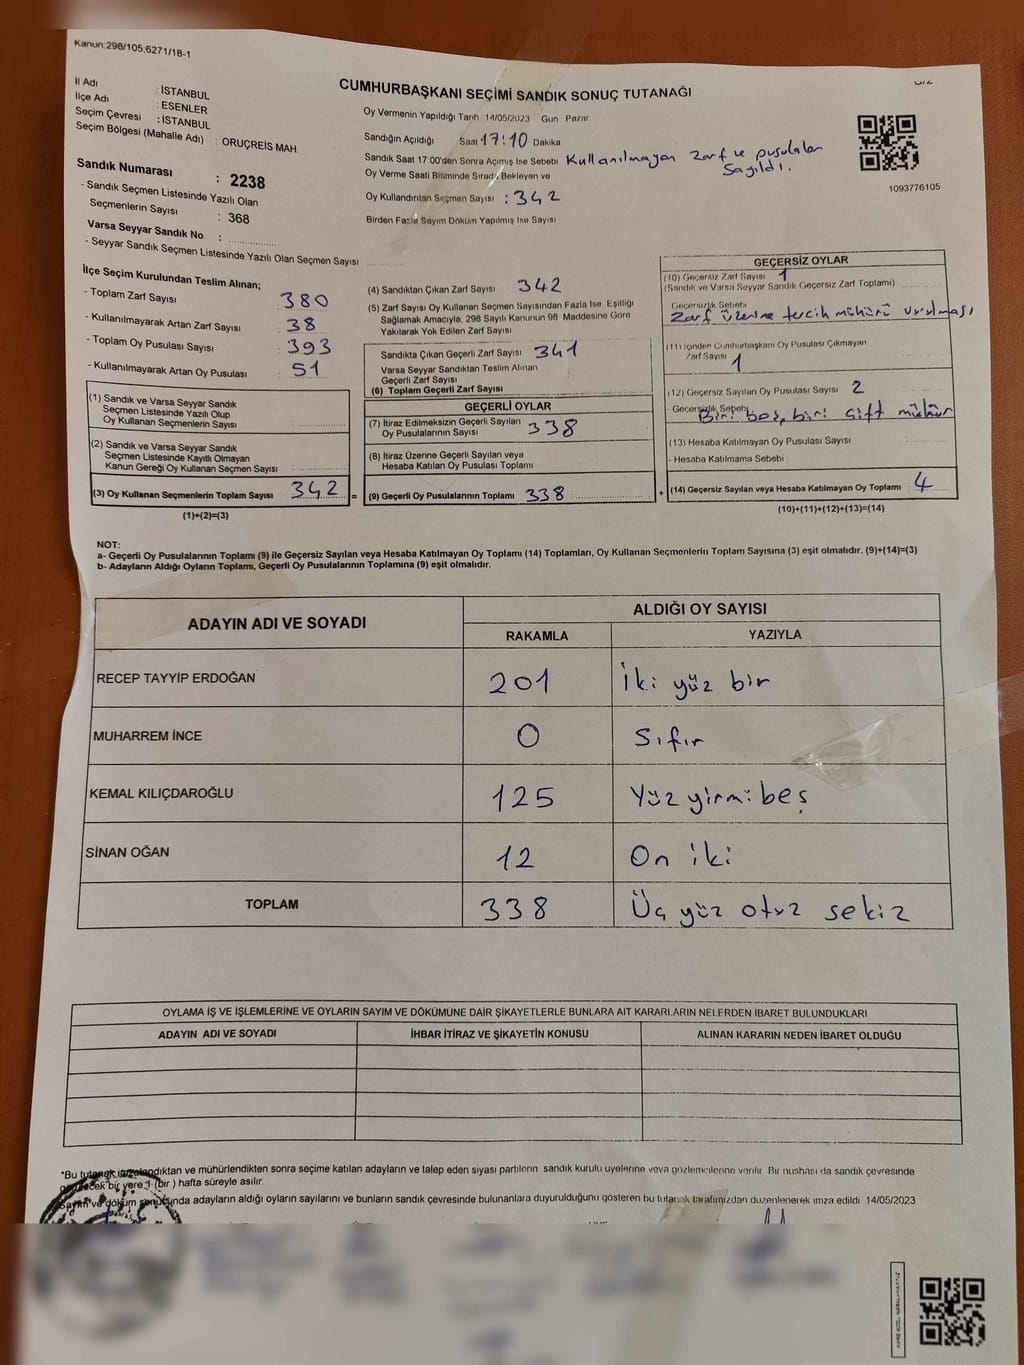 Kanun:298/105;6271/18-1
CUMHURBAŞKANI SEÇİMİ SANDIK SONUÇ TUTANAĞI
İl Adı : İSTANBUL
İlçe Adı : ESENLER
Seçim Çevresi : İSTANBUL
Seçim Bölgesi (Mahalle Adı) : ORUÇREİS MAH.
Sandık Numarası : 2238
- Sandık Seçmen Listesinde Yazılı Olan
Seçmenlerin Sayısı : 368
Varsa Seyyar Sandık No : ...............
- Seyyar Sandık Seçmen Listesinde Yazılı Olan Seçmen Sayısı ...............
Oy Vermenin Yapıldığı Tarih 14/05/2023 Gün Pazar
Sandığın Açıldığı Saat 17:10 Dakika
Sandık Saat 17:00'den Sonra Açımış İse Sebebi Kullanılmayan zarf ve pusulalar
sayıldı.
Oy Verme Saati Bitiminde Sırada Bekleyen ve
Oy Kullandırılan Seçmen Sayısı : 342
Birden Fazla Sayım Döküm Yapılmış İse Sayısı
1093776105
İlçe Seçim Kurulundan Teslim Alınan;
- Toplam Zarf Sayısı : 380
- Kullanılmayarak Artan Zarf Sayısı : 38
- Toplam Oy Pusulası Sayısı : 393
- Kullanılmayarak Artan Oy Pusulası : 51
(1) Sandık ve Varsa Seyyar Sandık
Seçmen Listesinde Yazılı Olup
Oy Kullanan Seçmenlerin Sayısı : ...............
(2) Sandık ve Varsa Seyyar Sandık
Seçmen Listesinde Kayıtlı Olmayan
Kanun Gereği Oy Kullanan Seçmen Sayısı : ...............
(3) Oy Kullanan Seçmenlerin Toplam Sayısı 342 =
(1)+(2)=(3)
(4) Sandıktan Çıkan Zarf Sayısı 342
(5) Zarf Sayısı Oy Kullanan Seçmen Sayısından Fazla İse Eşitliği
Sağlamak Amacıyla, 298 Sayılı Kanunun 98 Maddesine Göre
Yakılarak Yok Edilen Zarf Sayısı
Sandıkta Çıkan Geçerli Zarf Sayısı 341
Varsa Seyyar Sandıktan Teslim Alınan
Geçerli Zarf Sayısı
(6) Toplam Geçerli Zarf Sayısı
GEÇERLİ OYLAR
(7) İtiraz Edilmeksizin Geçerli Sayılan
Oy Pusulalarının Sayısı 338
(8) İtiraz Üzerine Geçerli Sayılan veya
Hesaba Katılan Oy Pusulası Toplamı
(9) Geçerli Oy Pusulalarının Toplamı 338 +
GEÇERSİZ OYLAR
(10) Geçersiz Zarf Sayısı 1
(Sandık ve Varsa Seyyar Sandık Geçersiz Zarf Toplamı)
Geçersizlik Sebebi
Zarf üzerine tercih mühürü vurulması
(11) İçinden Cumhurbaşkanı Oy Pusulası Çıkmayan
Zarf Sayısı 1
(12) Geçersiz Sayılan Oy Pusulası Sayısı 2
Geçersizlik Sebebi: Biri boş, biri çift mühür
(13) Hesaba Katılmayan Oy Pusulası Sayısı
- Hesaba Katılmama Sebebi :
(14) Geçersiz Sayılan veya Hesaba Katılmayan Oy Toplamı : 4
(10)+(11)+(12)+(13)=(14)
NOT:
a- Geçerli Oy Pusulalarının Toplamı (9) ile Geçersiz Sayılan veya Hesaba Katılmayan Oy Toplamı (14) Toplamları, Oy Kullanan Seçmenlerin Toplam Sayısına (3) eşit olmalıdır. (9)+(14)=(3)
b- Adayların Aldığı Oyların Toplamı, Geçerli Oy Pusulalarının Toplamına (9) eşit olmalıdır.
ADAYIN ADI VE SOYADI
ALDIĞI OY SAYISI
RAKAMLA YAZIYLA
RECEP TAYYİP ERDOĞAN 201 İki yüz bir
MUHARREM İNCE 0 Sıfır
KEMAL KILIÇDAROĞLU 125 Yüz yirmi beş
SİNAN OĞAN 12 On iki
TOPLAM 338 Üç yüz otuz sekiz
OYLAMA İŞ VE İŞLEMLERİNE VE OYLARIN SAYIM VE DÖKÜMÜNE DAİR ŞİKAYETLERLE BUNLARA AİT KARARLARIN NELERDEN İBARET BULUNDUKLARI
ADAYIN ADI VE SOYADI İHBAR İTİRAZ VE ŞİKAYETİN KONUSU ALINAN KARARIN NEDEN İBARET OLDUĞU
*Bu tutanak imzalandıktan ve mühürlendikten sonra seçime katılan adayların ve talep eden siyasi partilerin sandık kurulu üyelerine veya gözlemcilerine verilir. Bir nüshası da sandık çevresinde
bir yere 1 (bir ) hafta süreyle asılır.
Sayım ve döküm sonucunda adayların aldığı oyların sayılarını ve bunların sandık çevresinde bulunanlara duyurulduğunu gösteren bu tutanak tarafımızdan düzenlenerek imza edildi 14/05/2023